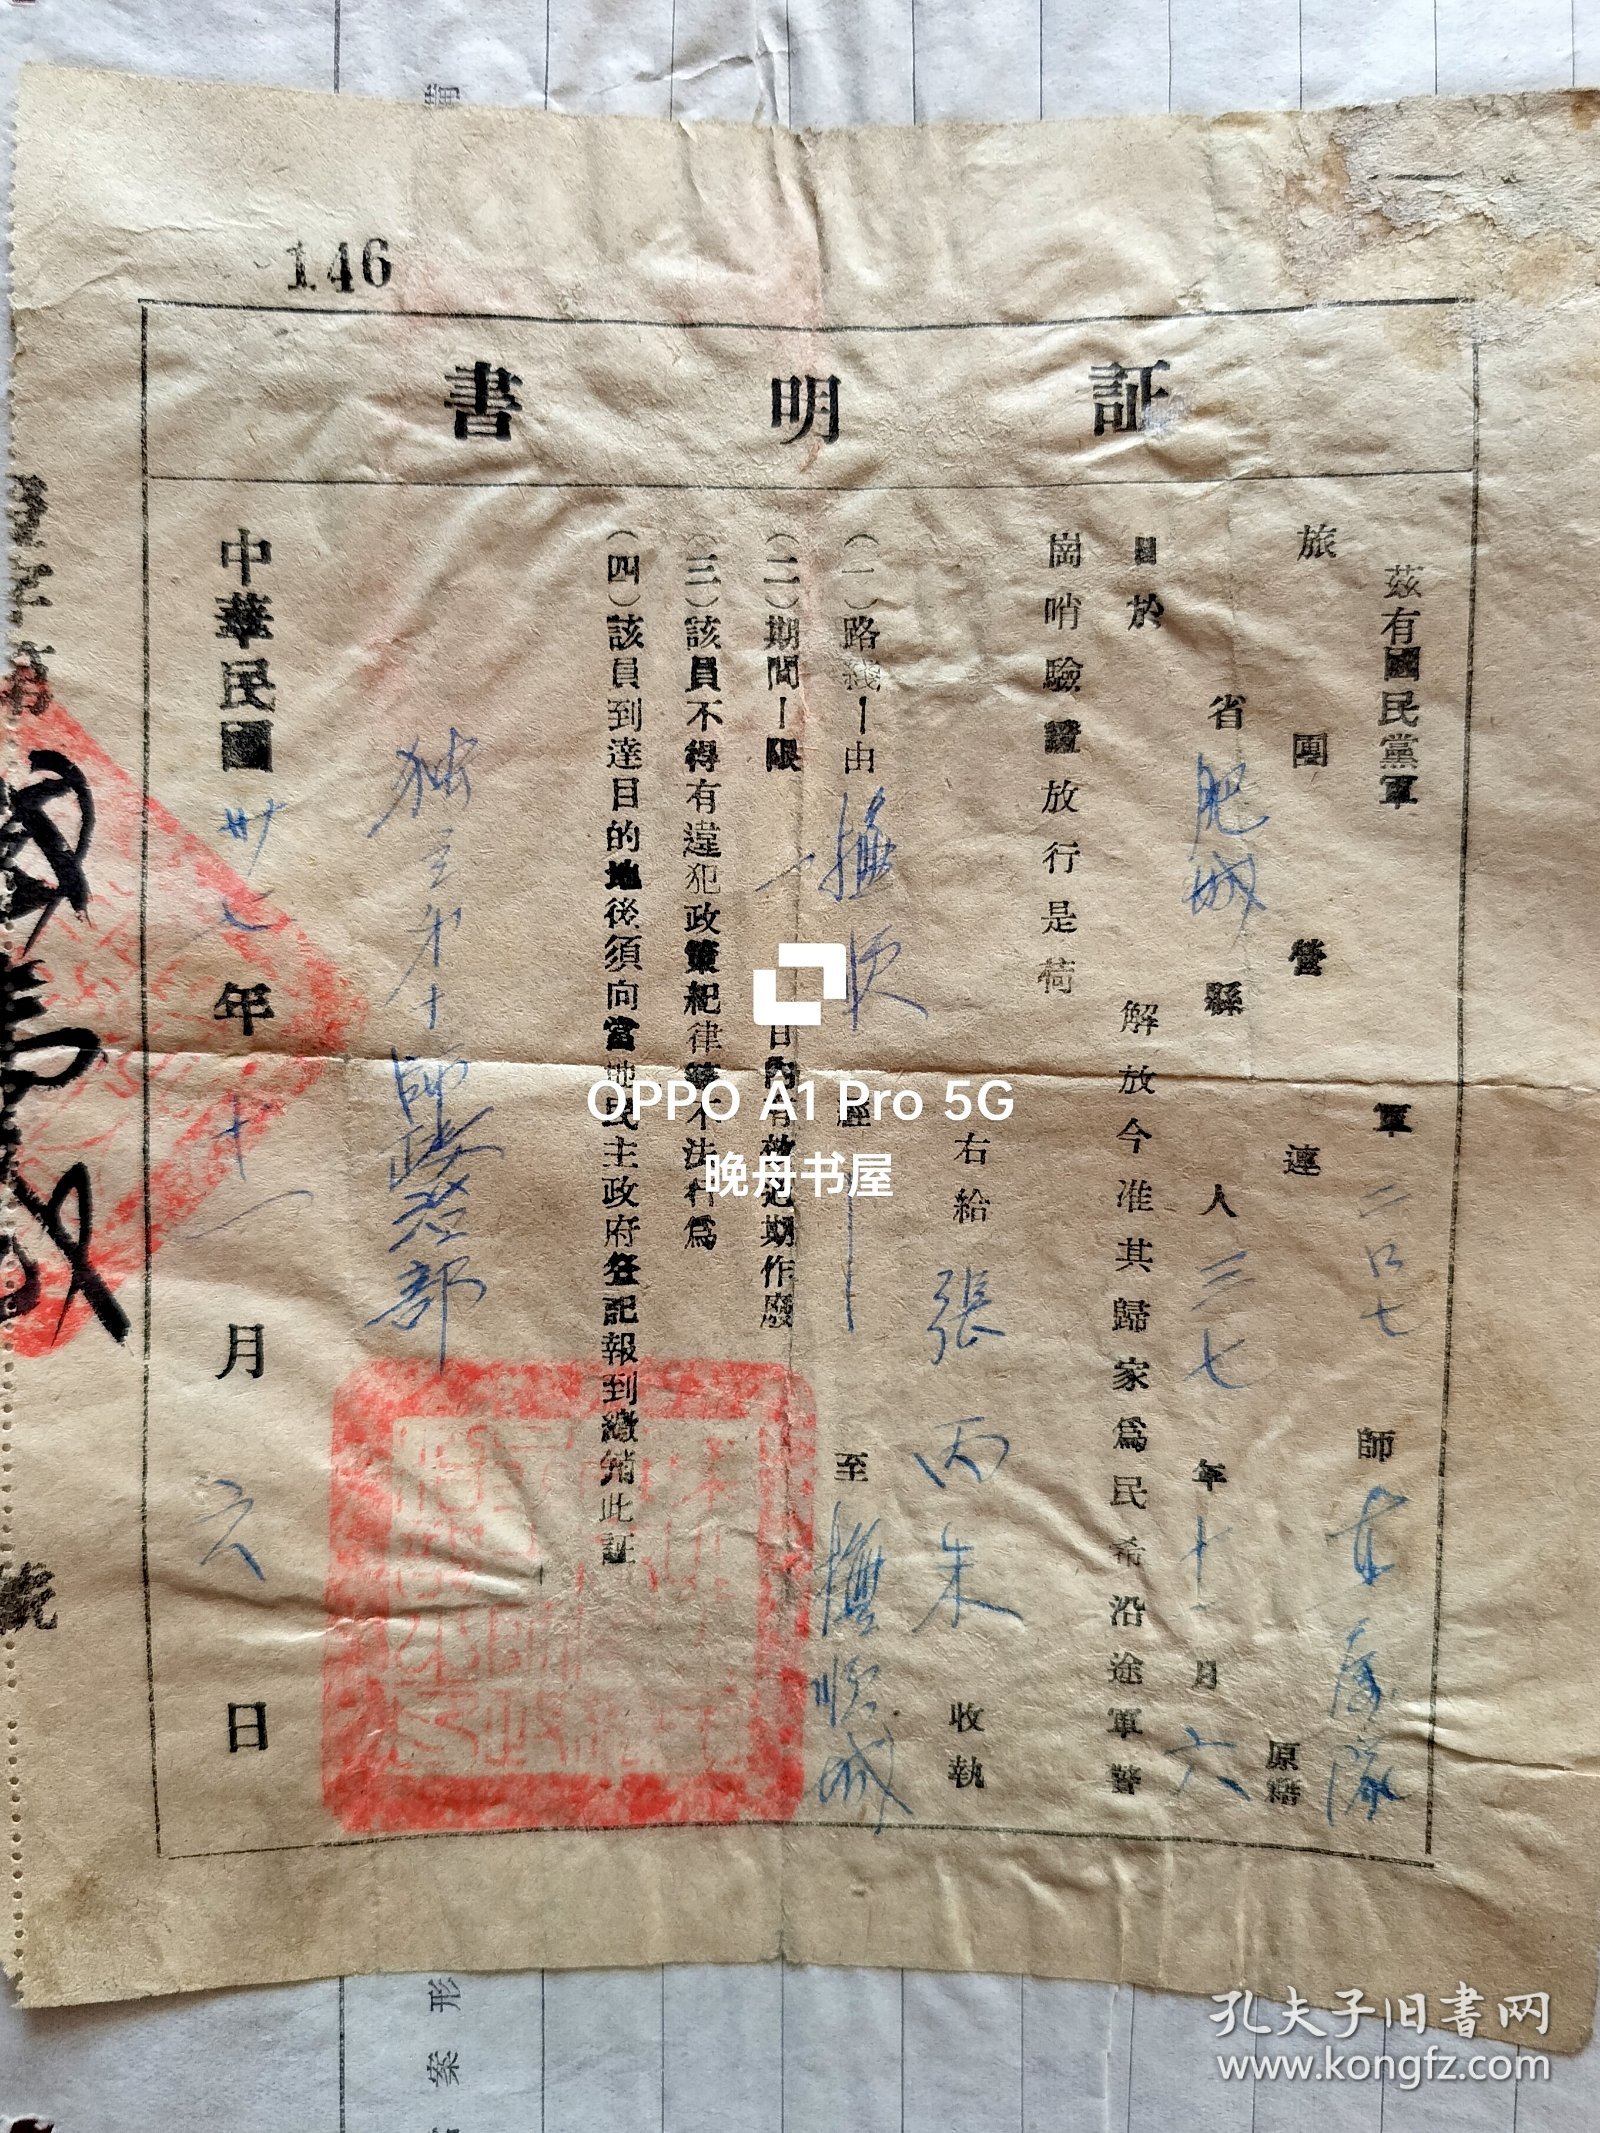 146
証明書
茲有國民黨軍 軍二〇七師
旅 團 營 連 原籍
省肥城縣人三七年十一月六
日於 解放今准其歸家為民希沿途軍警
崗哨驗證放行是荷
右給 張丙朱 收執
(一)路綫—由撫順經 至撫順城
(二)期間—限一日內有效過期作廢
(三)該員不得有違犯政策紀律等不法行為
(四)該員到達目的地後須向當地民主政府登記報到繳銷此証
独立第十師政治部
中華民國卅七年十一月六日
字第
號
OPPO A1 Pro 5G
晚舟书屋
形
案
孔夫子旧书网
www.kongfz.com